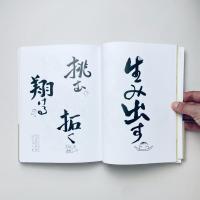 生み出す
挑む
拓く
翔ける